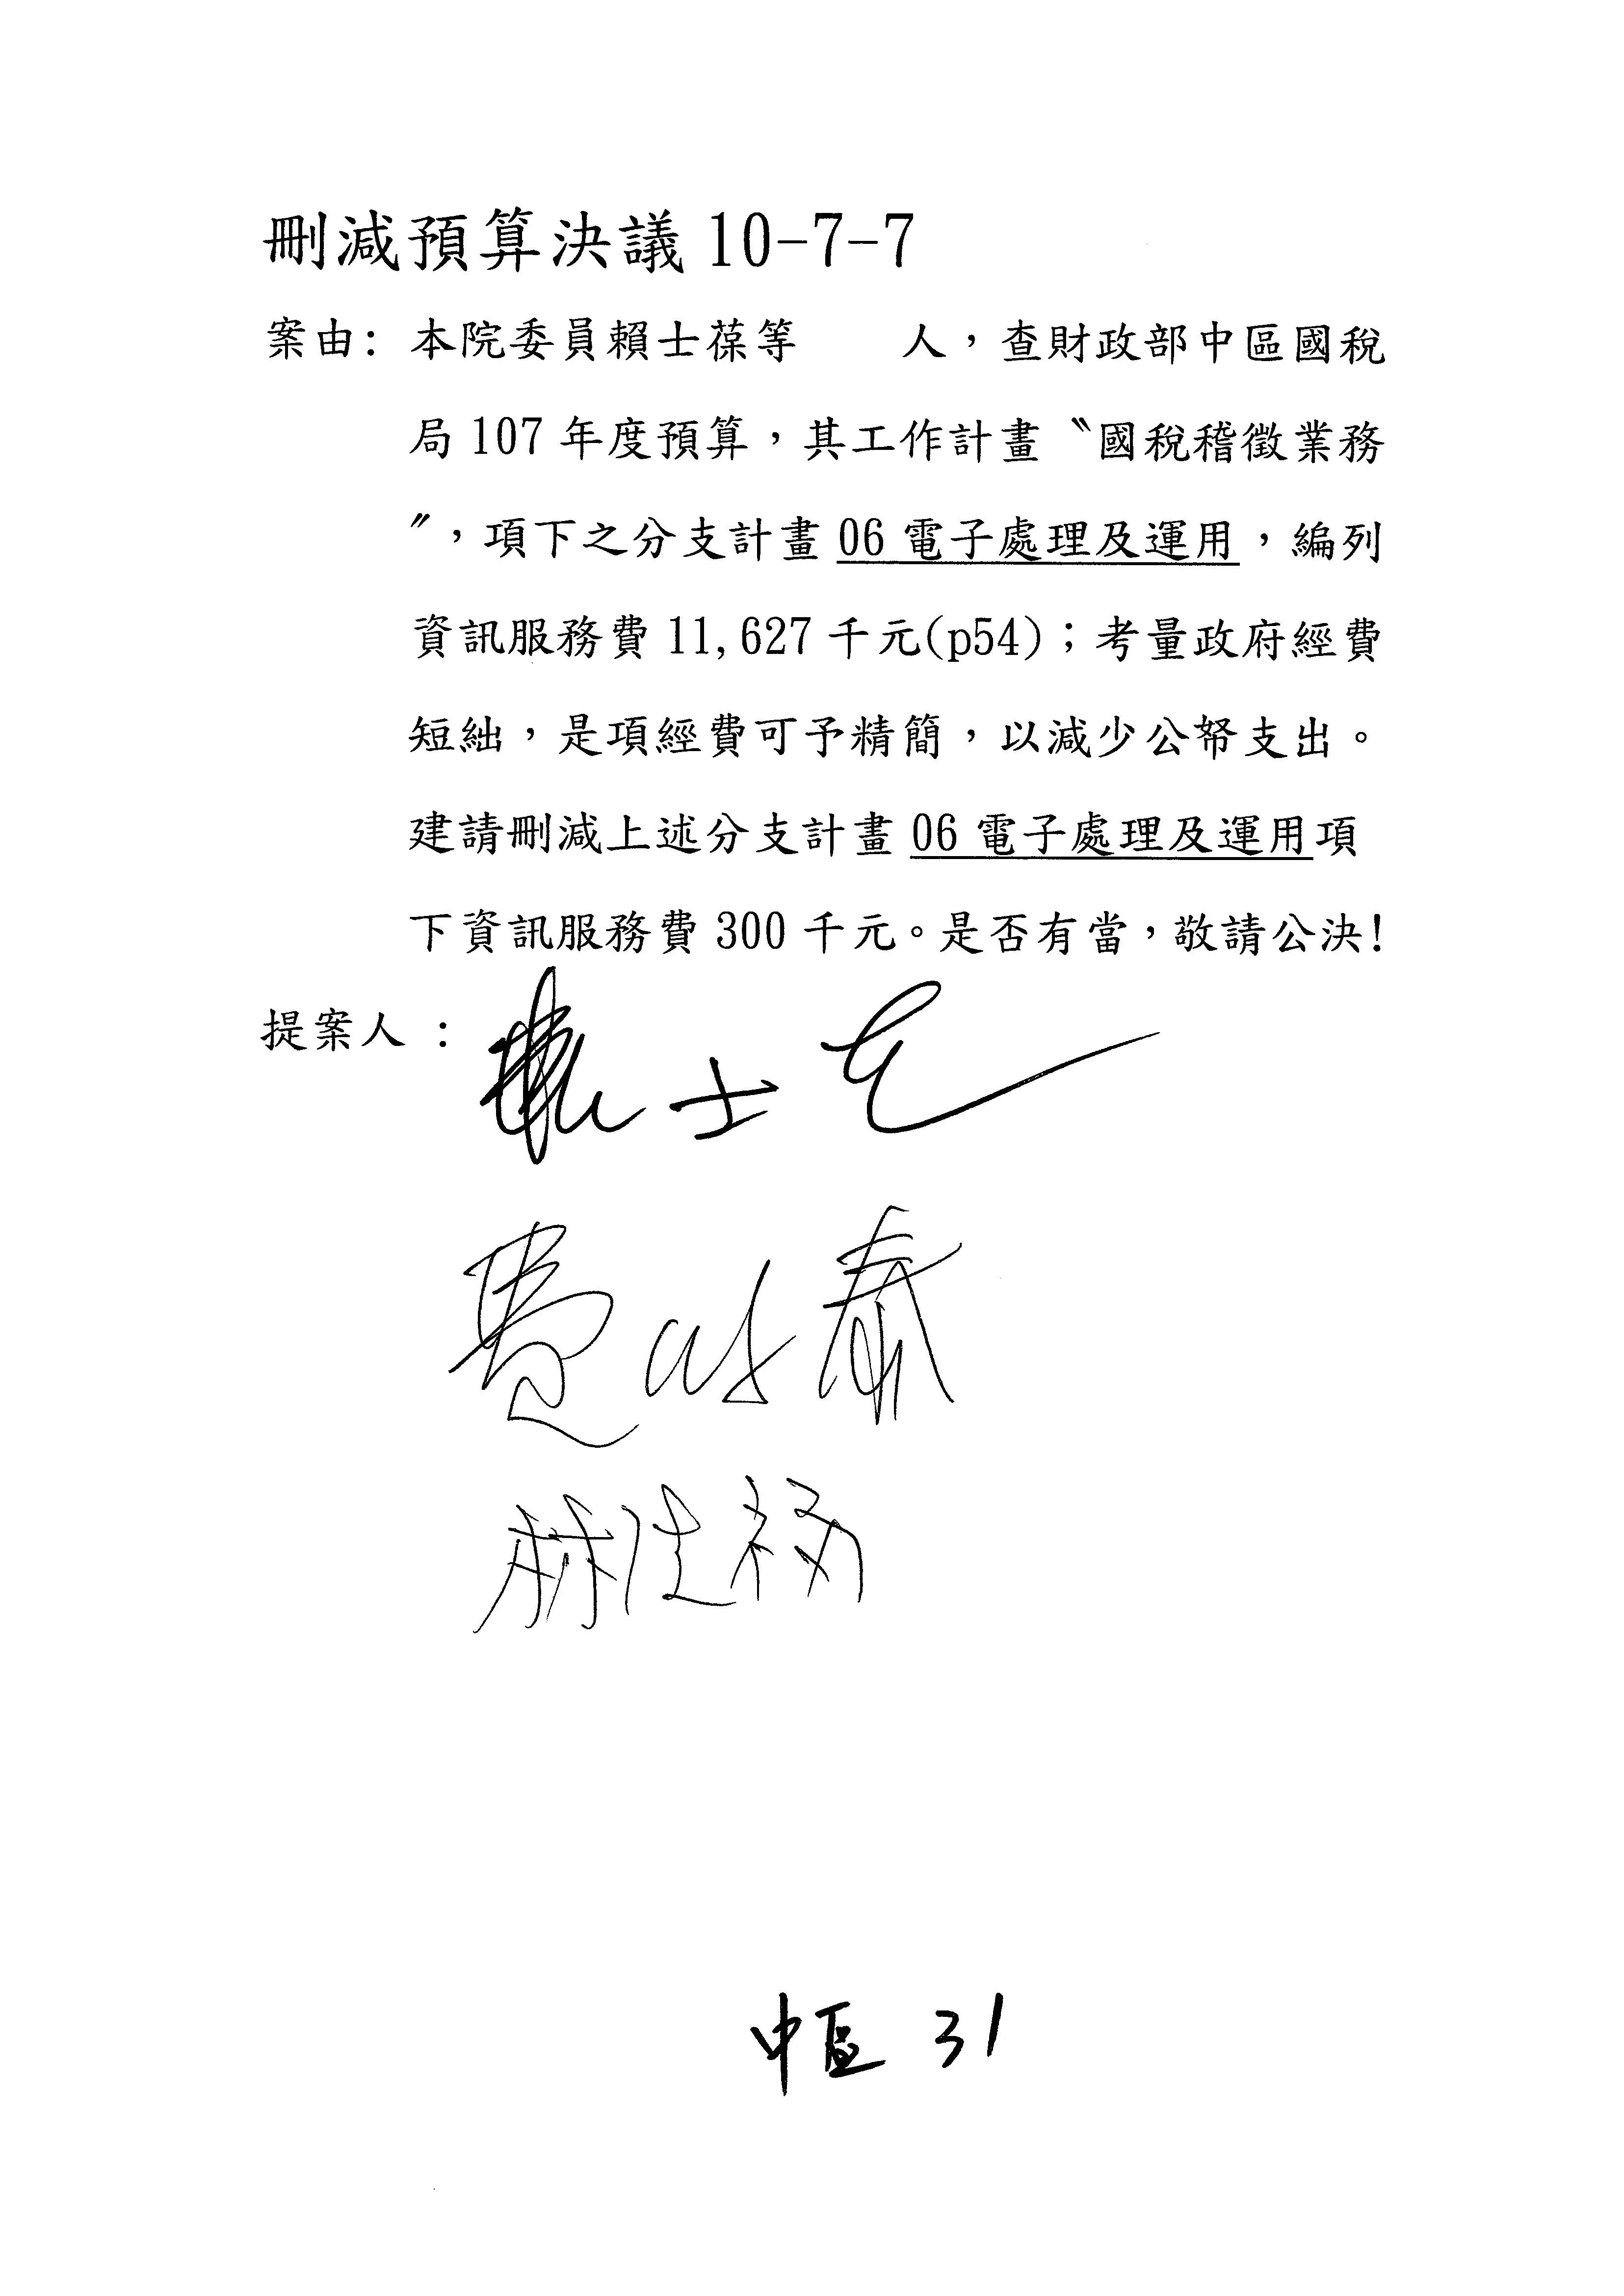 刪減預算決議 10-7-7
案由: 本院委員賴士葆等　　人，查財政部中區國稅
局 107 年度預算，其工作計畫〝國稅稽徵業務
〞，項下之分支計畫 06 電子處理及運用，編列
資訊服務費 11,627 千元(p54)；考量政府經費
短絀，是項經費可予精簡，以減少公帑支出。
建請刪減上述分支計畫 06 電子處理及運用項
下資訊服務費 300 千元。是否有當，敬請公決!
提案人 :
費鴻泰
林德福
中區 31